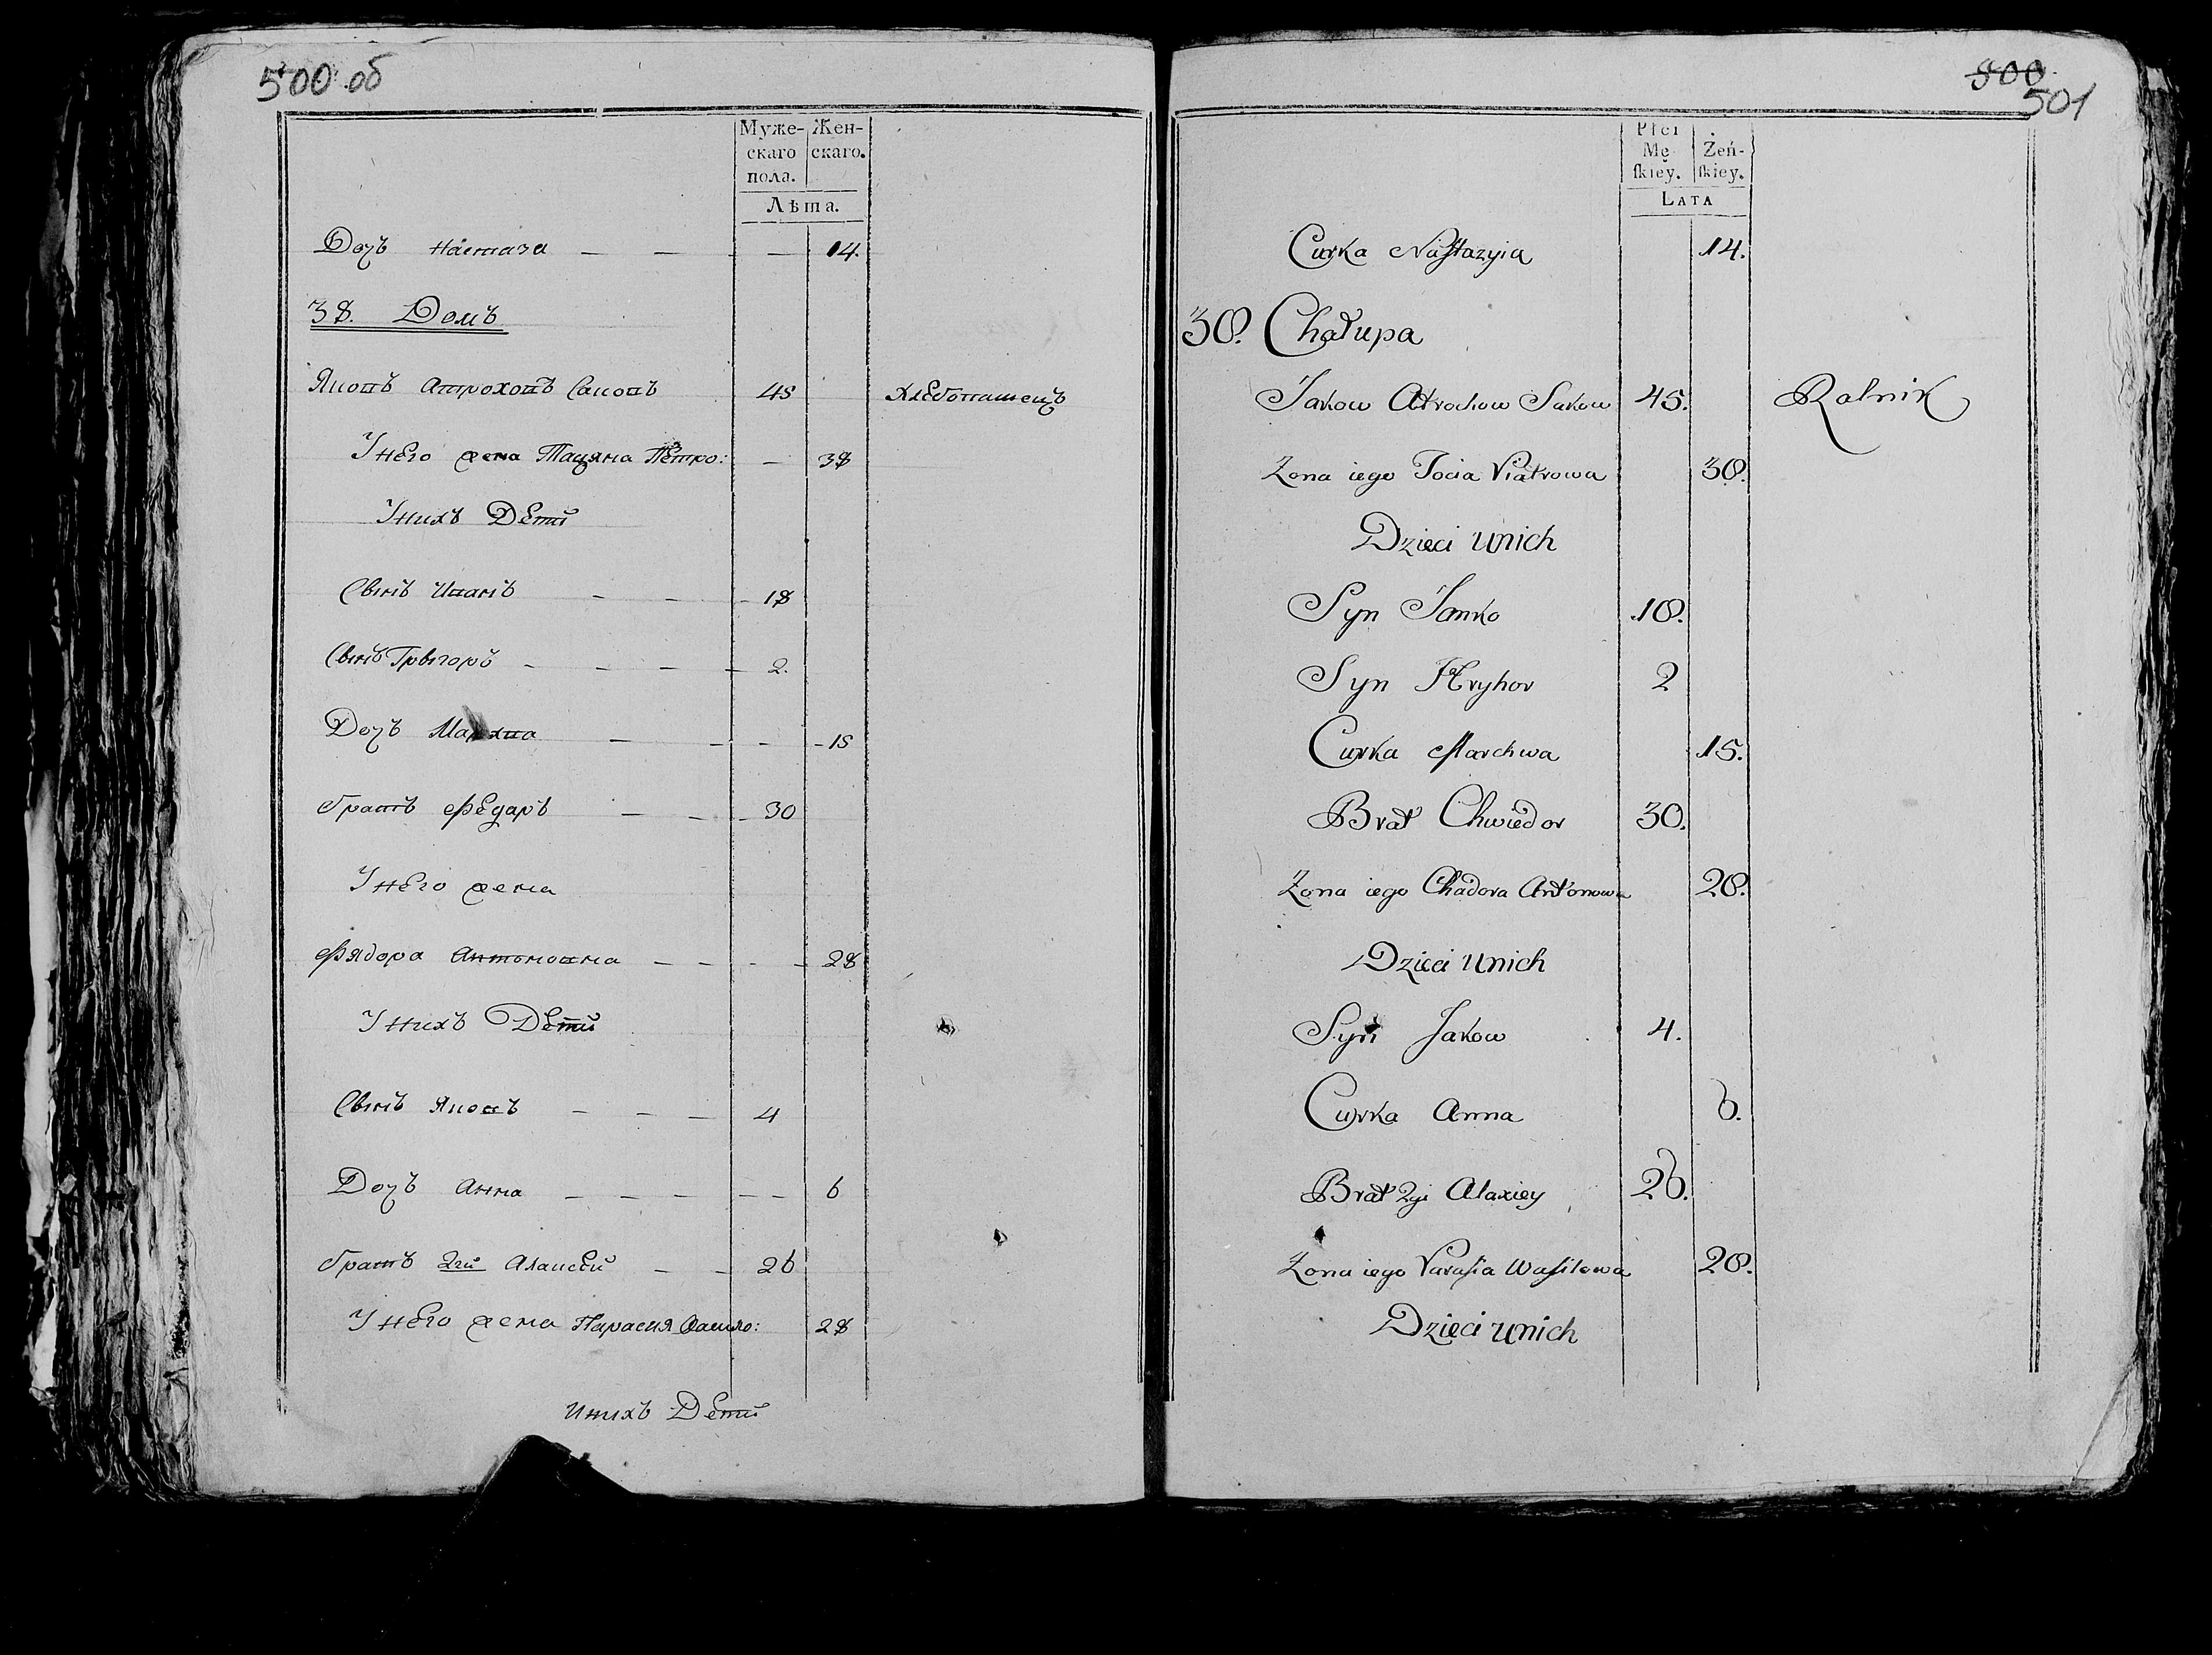 500 об
Муже-
скаго
пола.
Жен-
скаго.
Лѣта.
Дочъ Настаза — — — 14.
38. Домъ
Яковъ Атроховъ Саковъ 45 хлебопашецъ
У него жена Тацяна Петро: — 38
У нихъ Дети
Сынъ Иванъ - - - 18
Сынъ Грыгоръ - - - - 2.
Дочъ Мархва - - - - 15
братъ Федаръ - - - 30
У него жена
Фядора Антоновна - - - - 28
У нихъ Дети
Сынъ Яковъ - - - 4
Дочъ Анна - - - - - 6
братъ 2гй Алаксей - - 26
У него жена Парасия Васило: 28
У нихъ Дети
500
501
Płci
Mę
skiey.
Żeń-
skiey.
LATA
Curka Nastazyia 14.
38. Chałupa
Jakow Atrochow Sakow 45. Rolnik
Zona iego Tocia Piatrowa 38.
Dzieci u nich
Syn Janko 18.
Syn Hryhor 2
Curka Marchwa 15.
Brat Chwiedor 30.
Zona iego Chadora Antonowa 28.
Dzieci u nich
Syn Jakow 4.
Curka Anna 6.
Brat 2gi Alaxiey 26.
Zona iego Parasia Wasilowa 28.
Dzieci u nich